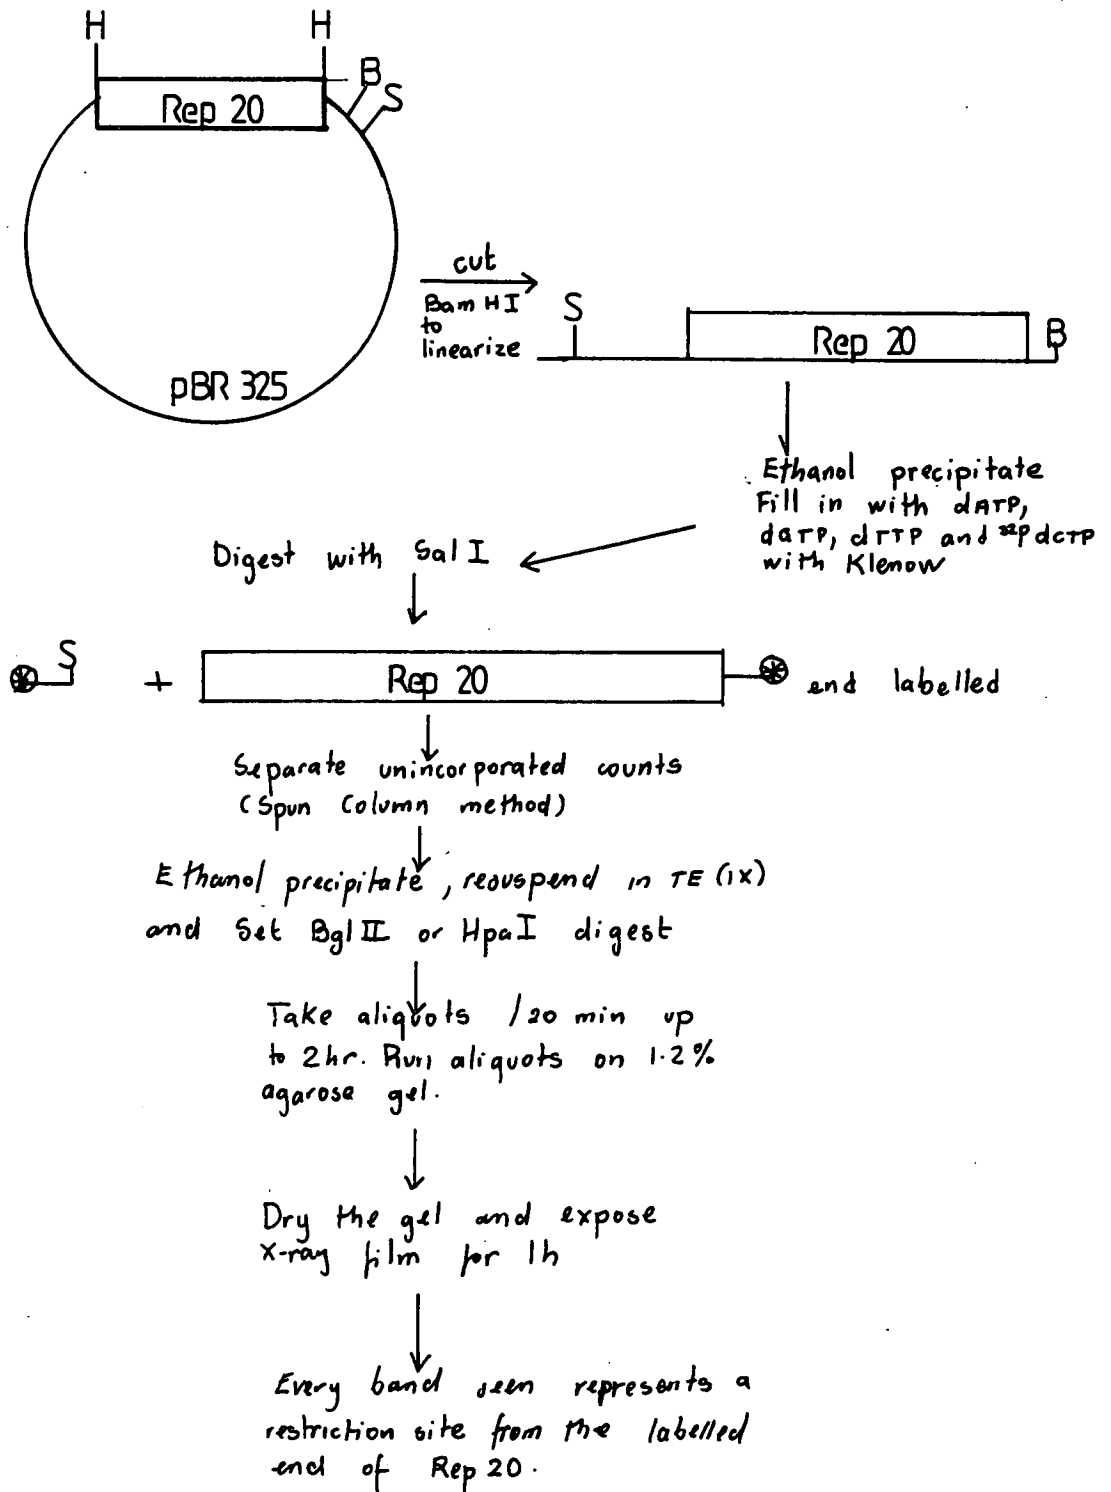 H H
B
S
Rep 20
pBR 325
cut
Bam HI
to
linearize
S
Rep 20
B
Ethanol precipitate
Fill in with dATP,
dGTP, dTTP and ³²P dCTP
with Klenow
Digest with Sal I
S + Rep 20 end labelled
Separate unincorporated counts
(Spun Column method)
Ethanol precipitate, resuspend in TE (1X)
and Set Bgl II or Hpa I digest
Take aliquots /20 min up
to 2hr. Run aliquots on 1.2%
agarose gel.
Dry the gel and expose
X-ray film for 1h
Every band seen represents a
restriction site from the labelled
end of Rep 20.